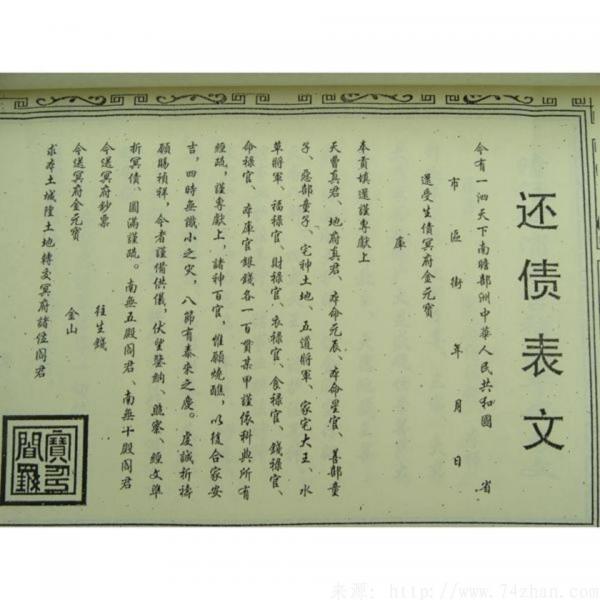 还债表文
今有一泗天下南瞻部洲中華人民共和國　省
市　區　街　年　月　日
還受生債冥府金元寶
庫
奉責填還謹專献上
天曹真君、地府真君、本命元辰、本命星官、善部童
子、惡部童子、宅神土地、五道將軍、家宅大王、水
草將軍、福禄官、財禄官、衣禄官、食禄官、錢禄官、
命禄官、本庫官銀錢各一百貫某甲謹依科典所有
經疏，謹專献上，諸神百官，惟願燒醮，以後合家安
吉，四時無讖小之灾，八節有泰來之慶。虔誠祈禱
願賜禎祥，今者謹備供儀，伏望鑒納，照察、經文準
折冥債、圓滿謹疏。南無五殿阎君、南無十殿阎君
今送冥府鈔票　往生錢
今送冥府金元寶　金山
求本土城隍土地轉交冥府諸位阎君
来源：http://www.74zhan.com